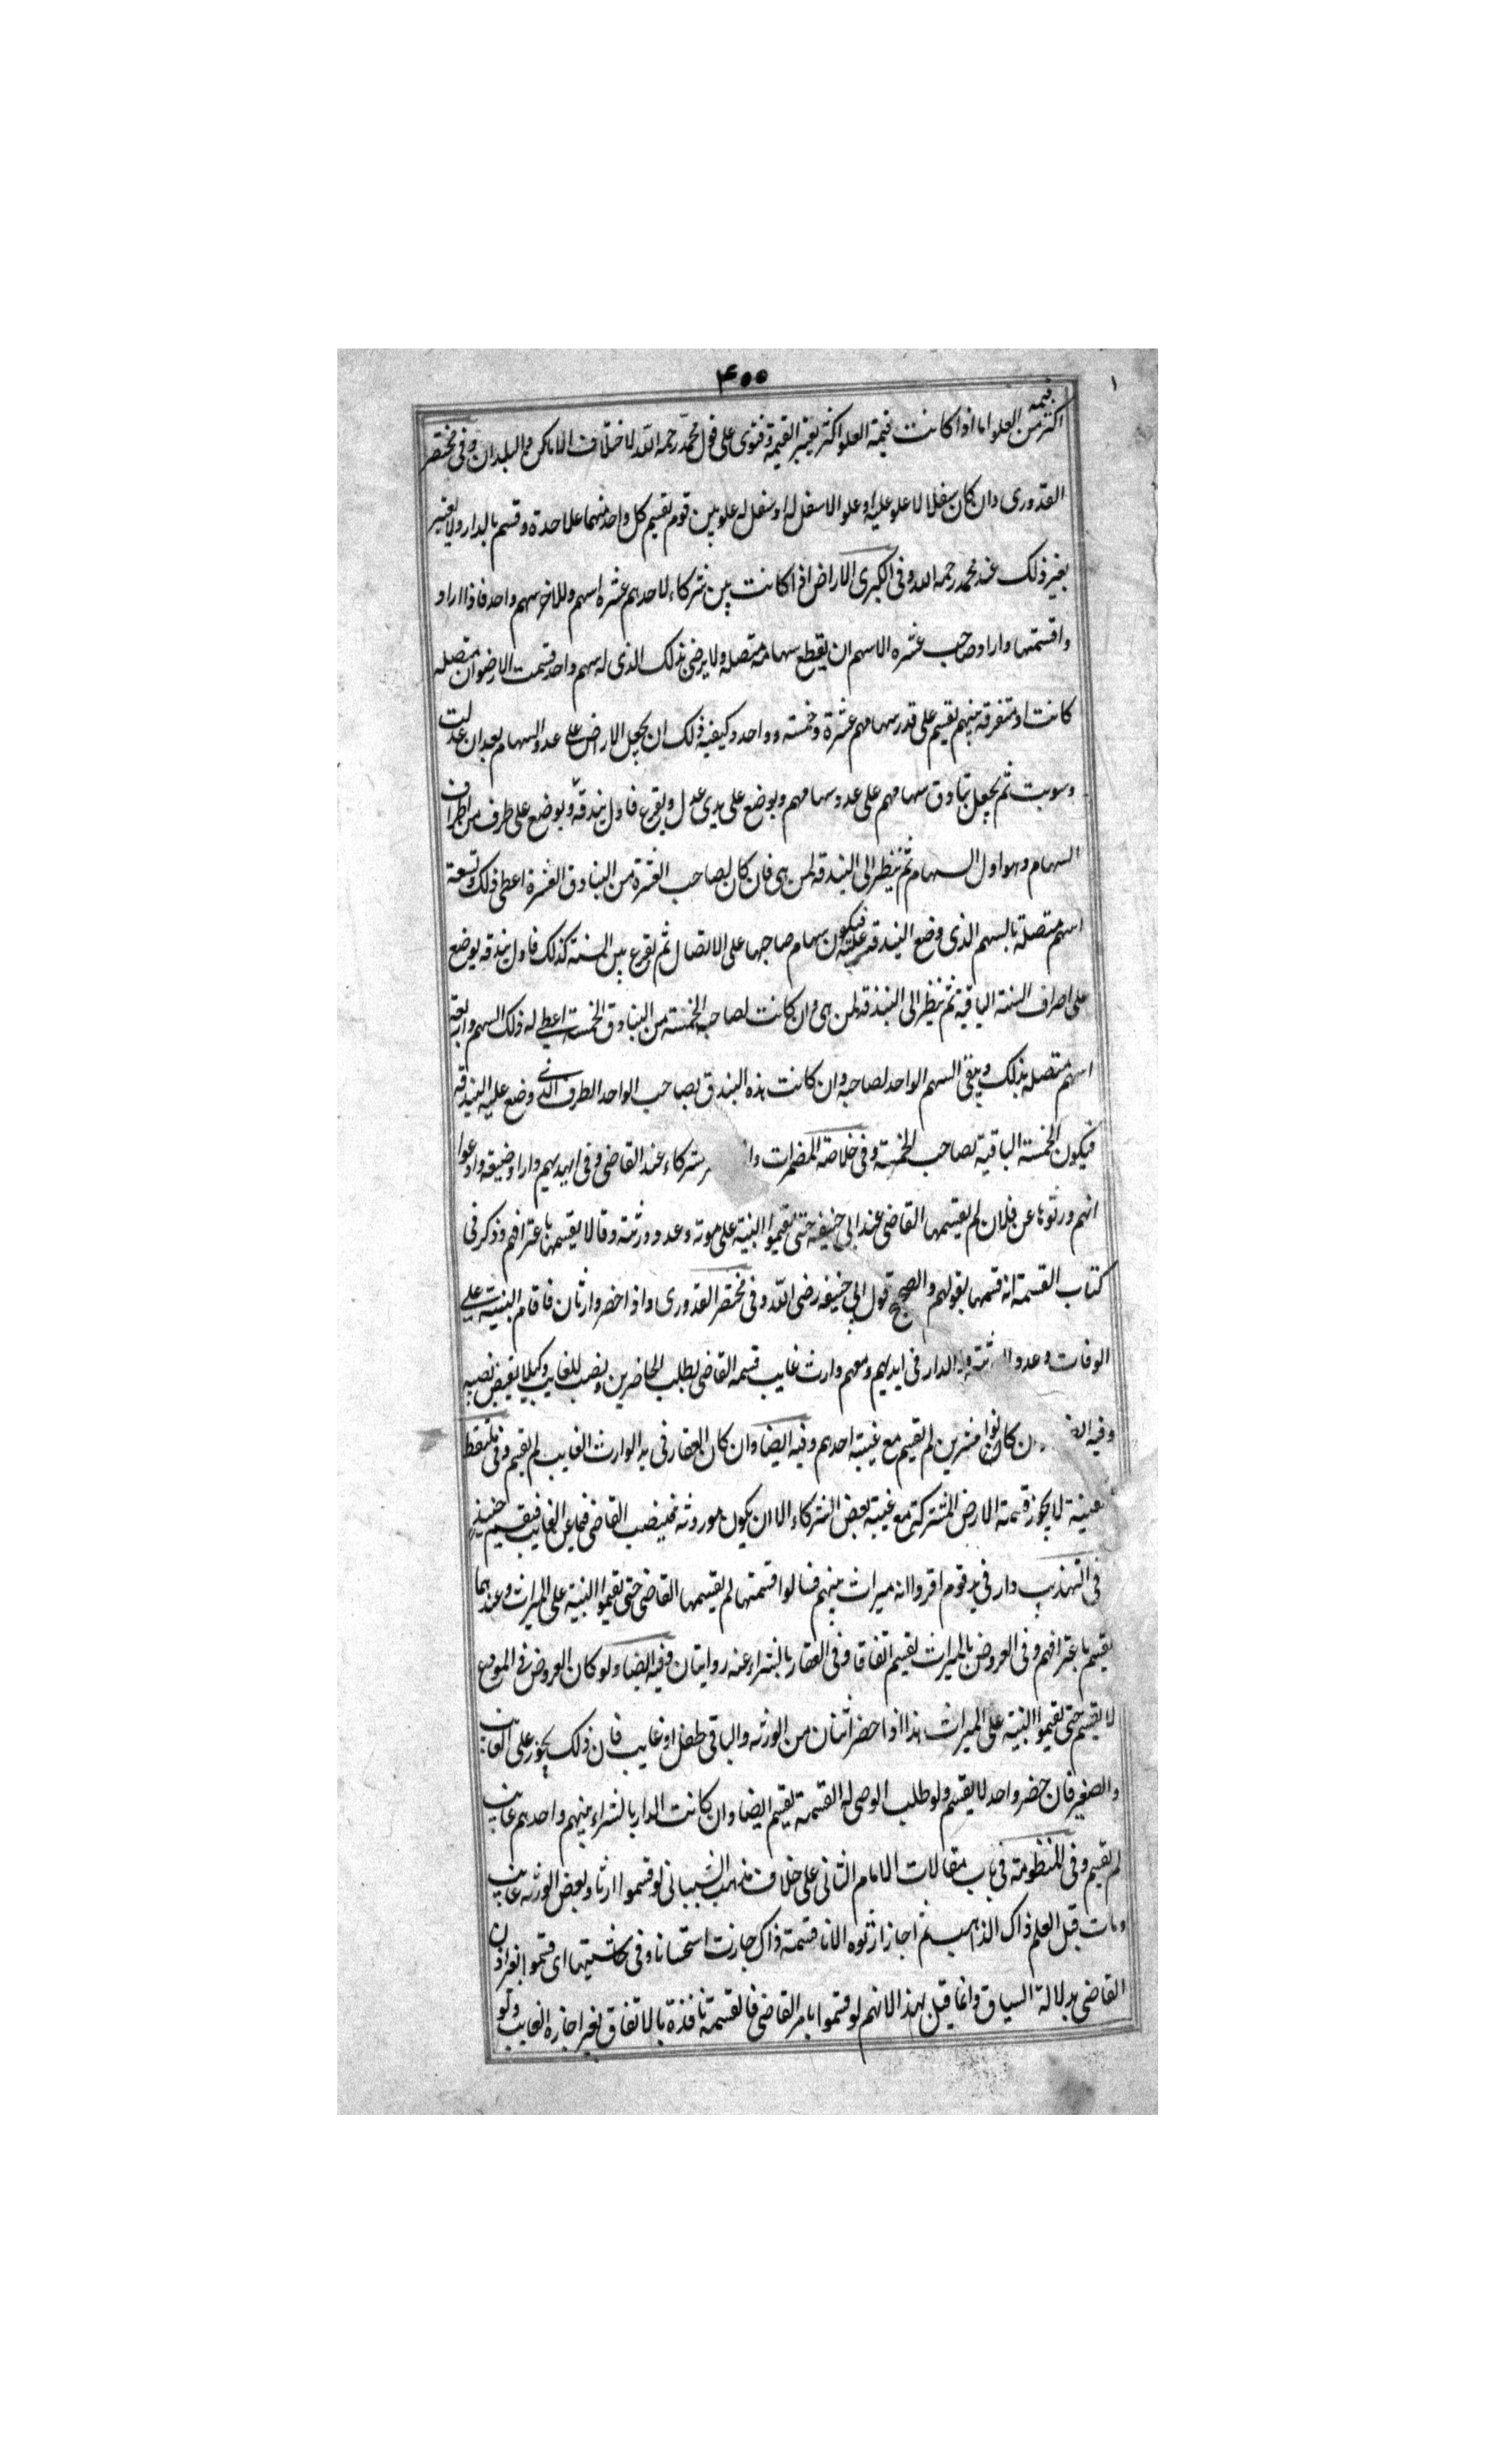 ۴۰۰
قيمه
اكثر من العلو اما اذا كانت قيمة العلو اكثر يعتبر القيمة وفتوى على قول محمد رحمه الله لاختلاف الاماكن والبلدان وفى مختصر
القدورى وان كان سفلا لا علو عليه او علو لا سفل له او سفل له علو بين قوم يقسم كل واحد منهما علاحدة وقسم بالدار ولا يعتبر
بغير ذلك عند محمد رحمه الله وفى الكبرى الاراض اذا كانت بين شركاء لاحدهم عشره اسهم وللاخر سهم واحد فاذا اراد
وا قسمتها واراد صاحب عشره الاسهم ان يقطع سهامه متصله ولا يرضى بذلك الذى له سهم واحد قسمت الارضون متصله
كانت او متفرقه بينهم يقسم على قدر سهامهم عشرة وخمسته وواحد وكيفيه ذلك ان يجعل الارض على عدد السهام بعد ان عدلت
وسويت ثم يجعل بنادق سهامهم على عدد سهامهم ويوضع على يدى عدل ويقرع فاول بندقه ويوضع على طرف من اطراف
السهام وهو اول السهام ثم ينظر الى البندقه لمن هى فان كان لصاحب العشرة من البنادق العشرة اعطى ذلك وتسعة
اسهم متصلة بالسهم الذى وضع البندقه عليه فيكون سهام صاحبها على الاتصال ثم يقرع بين الستة كذلك فاول بندقه يوضع
على اطراف الستة الباقية ثم ينظر الى البندقه لمن هى وان كانت لصاحبه الخمسته من البنادق الخمسة اعطى له ذلك السهم واربعة
اسهم متصله بذلك ويبقى السهم الواحد لصاحبه وان كانت هذه البندق لصاحب الواحد الطرف الذى وضع عليه البندقه
فيكون الخمسته الباقية لصاحب الخمسته وفى خلاصة المضمرات شركاء عند القاضى وفى ايديهم دار او ضيعه وادعوا
انهم ورثوها عن فلان لم يقسمها القاضى عند ابى حنيفه حتى يقيموا البنية على موته وعدد ورثته وقالا يقسمها باعترافهم وذكر فى
كتاب القسمة انه قسمها بقولهم والصحيح قول ابى حنيفه رضى الله وفى مختصر القدورى واذا حضر وارثان فاقام البنية على
الوفات وعدد الدار فى ايديهم ومعهم وارث غايب قسمه القاضى بطلب الحاضرين ونصب للغايب وكيلا يقبض نصيبه
وفيه كانوا مشترين لم يقسم مع غيبة احدهم وفيه ايضا وان كان العقار فى يد الوارث الغايب لم يقسم وفى ملتقط
لا يجوز قسمة الارض المشتركة مع غيبة بعض الشركاء الا ان يكون موروثه فينصب القاضى قيما عن الغايب فيقسم حينئذ
فى التهذيب دار فى يد قوم اقروا انه ميراث بينهم فسالوا قسمتها لم يقسمها القاضى حتى يقيموا البنية على الميراث وعندهما
يقسم باعترافهم وفى العروض بالميراث يقسم اتفاقا وفى العقار بالشراء عنه روايتان وفيه ايضا ولو كان العروض فى المودع
لا يقسم حتى يقيموا البنية على الميراث هذا اذا حضر اثنان من الورثه والباقى طفل او غايب فان ذلك يجوز على الغايب
والصغير فان حضر واحد لا يقسم ولو طلب الوصى له القسمة يقسم ايضا وان كانت الدار بالشراء بينهم واحدهم غايب
لم يقسم وفى المنظومة فى باب مقالات الامام الثانى على خلاف مذهب الشيبانى لو قسموا ارثا وبعض الورثه غايب
ومات قبل العلم ذاك الذاهب ثم اجاز ارثوه الانا قسمة ذاك جازت استحسانا وفى حاشيتها اى قسموا بغير اذن
القاضى بدلالة السياق وانما قيل بهذا لانهم لو قسموا بامر القاضى فالقسمة نافذة بالاتفاق بغير اجازه الغايب ولو